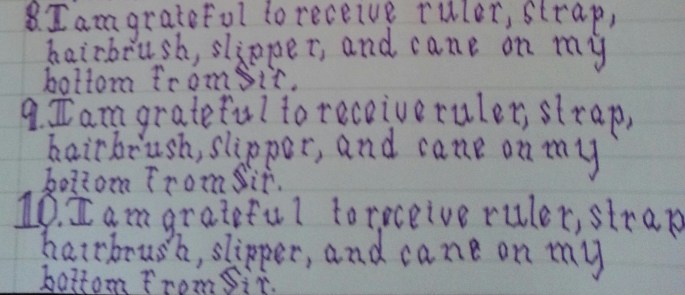 8. I am grateful to receive ruler, strap,
hairbrush, slipper, and cane on my
bottom from Sir.
9. I am grateful to receive ruler, strap,
hairbrush, slipper, and cane on my
bottom from Sir.
10. I am grateful to receive ruler, strap
hairbrush, slipper, and cane on my
bottom from Sir.